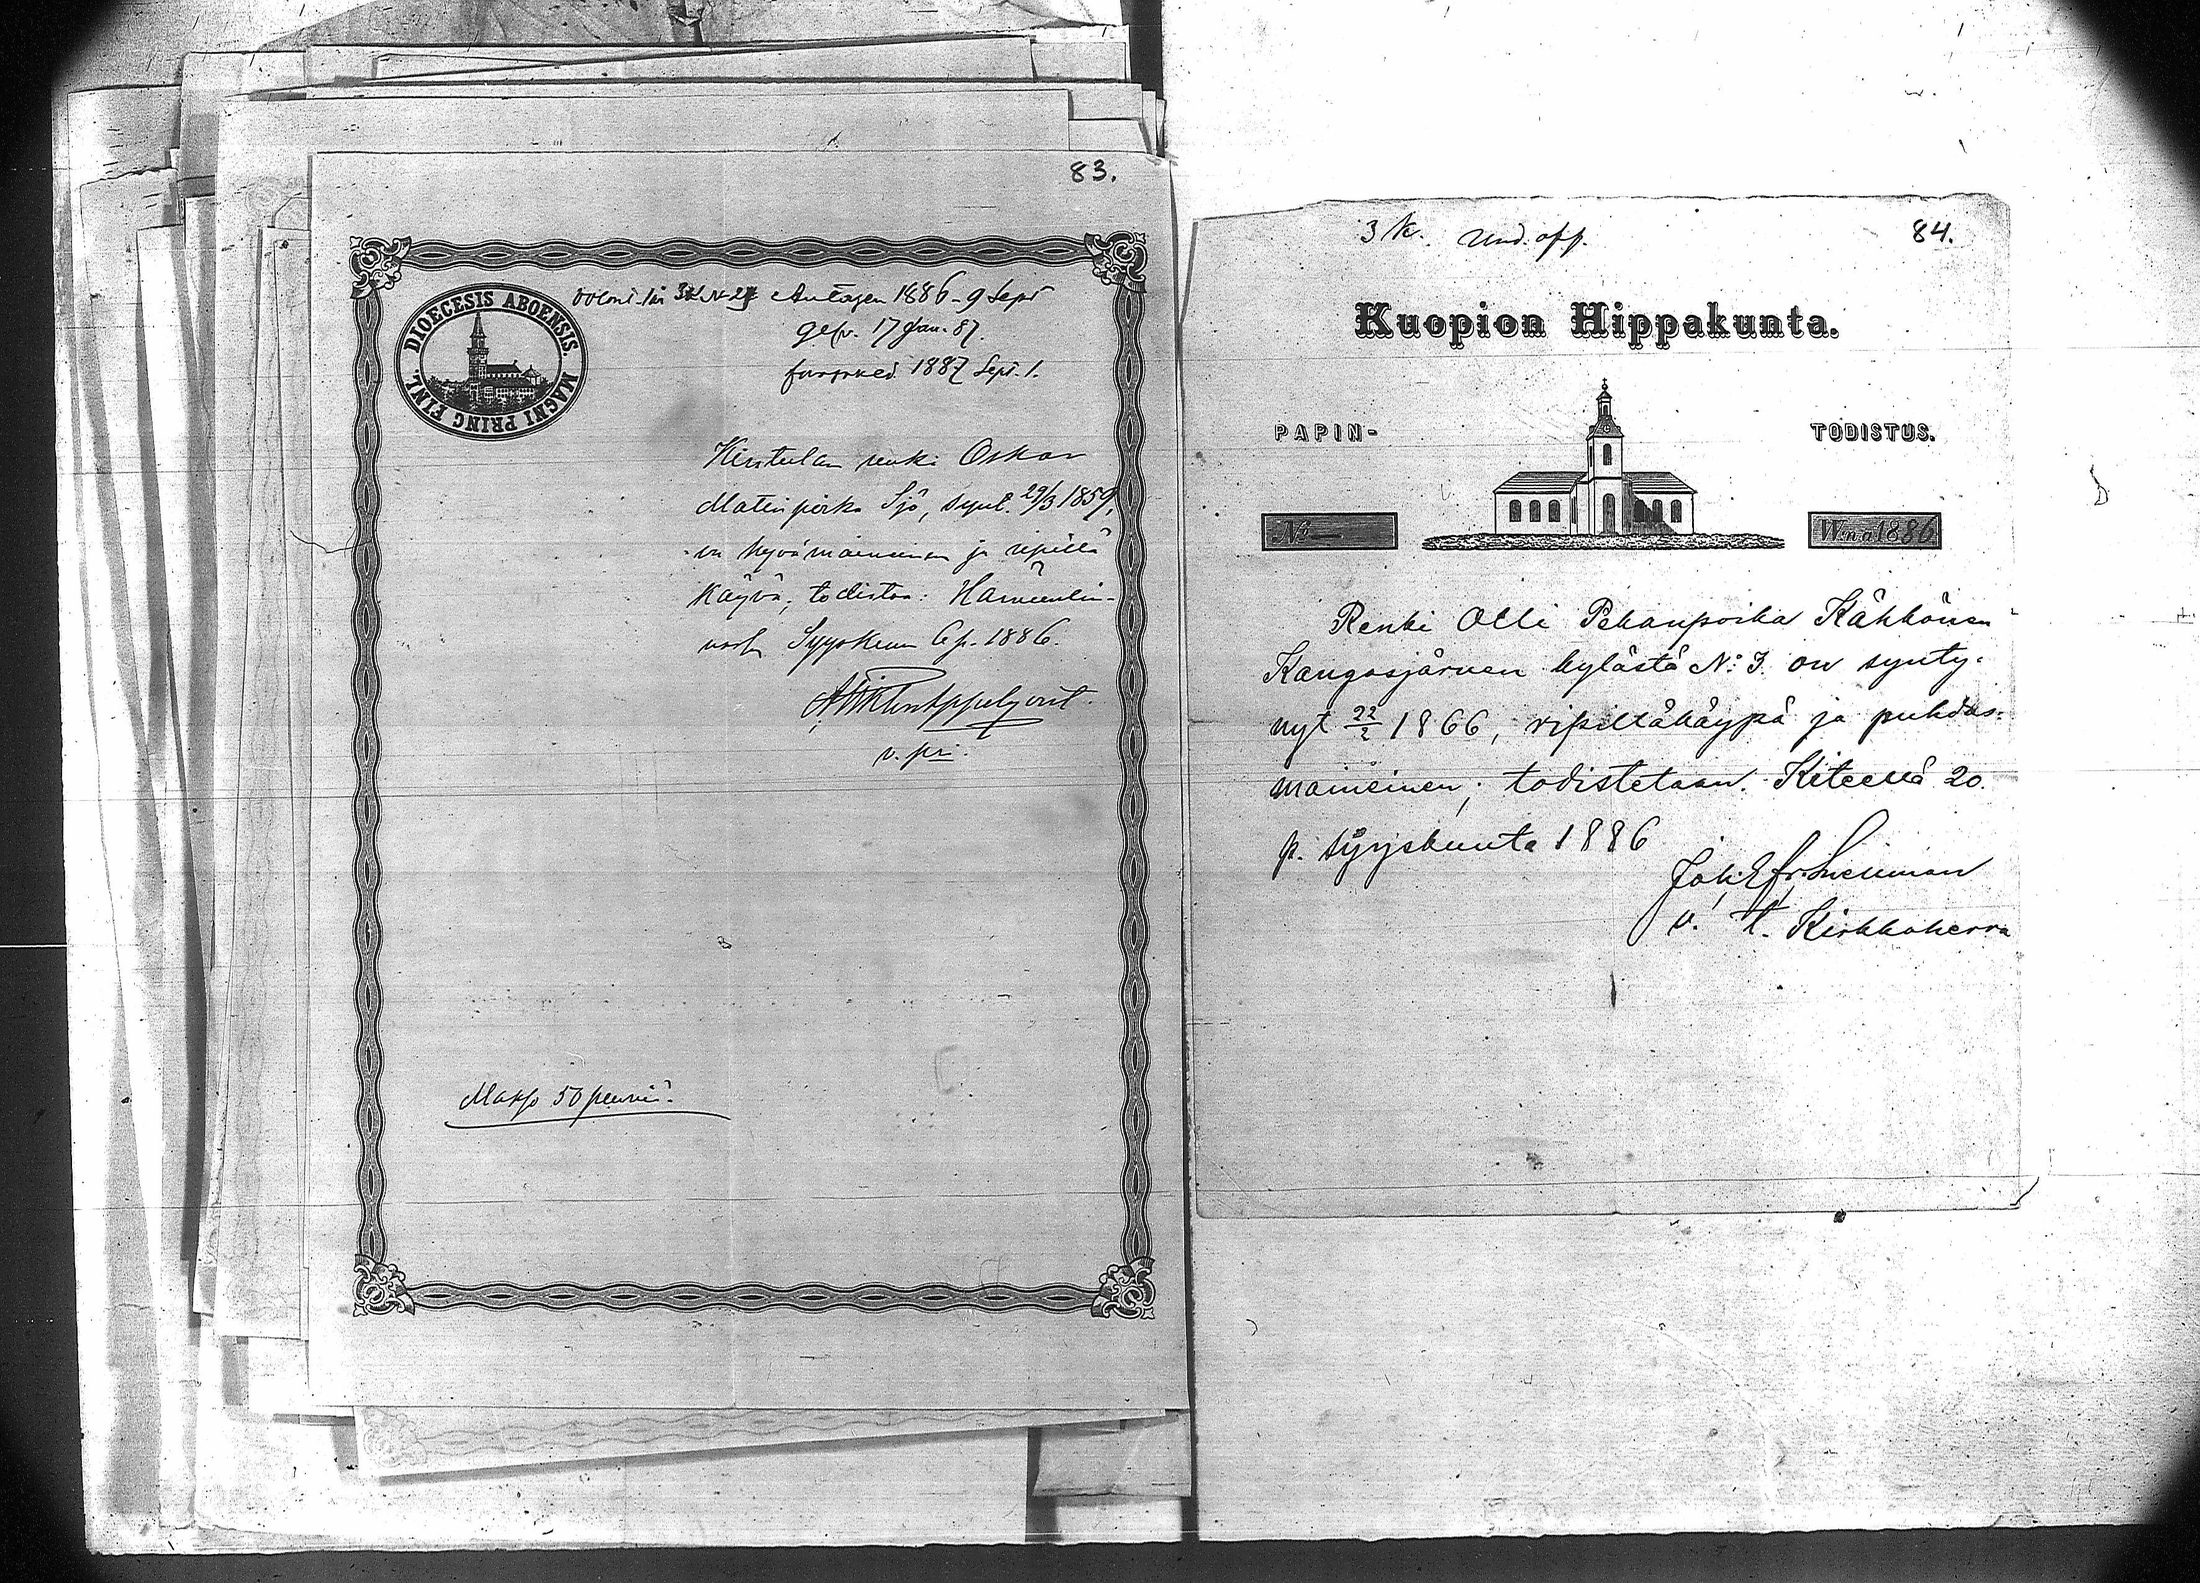 83.
DIOECESIS ABOENSIS.
MAGNI PRINC FINL.
Antagen 1886 - 9 Sept
17 Jan. 87.
1887 Sept. 1.
renki Oskar
Matinpoika Sjö, synt. 29/3 1859,
on hyvämaineinen ja ripillä
käypä, todistaa: Hämeenlin-
Syyskuun 6 p. 1886.
v. pr.
Makso 50 penniä.
3 k. und. off.
84.
Kuopion Hippakunta.
PAPIN-
TODISTUS.
No —
W:na 1886
Renki Olli Pekanpoika Kähkönen
Kangasjärven kylästä No: 3. on synty-
nyt 22/2 1866, ripilläkäypä ja puhdas-
maineinen; todistetaan. Kiteellä 20.
p. syyskuuta 1886
Joh. Efr. Snellman
v. t. Kirkkoherra